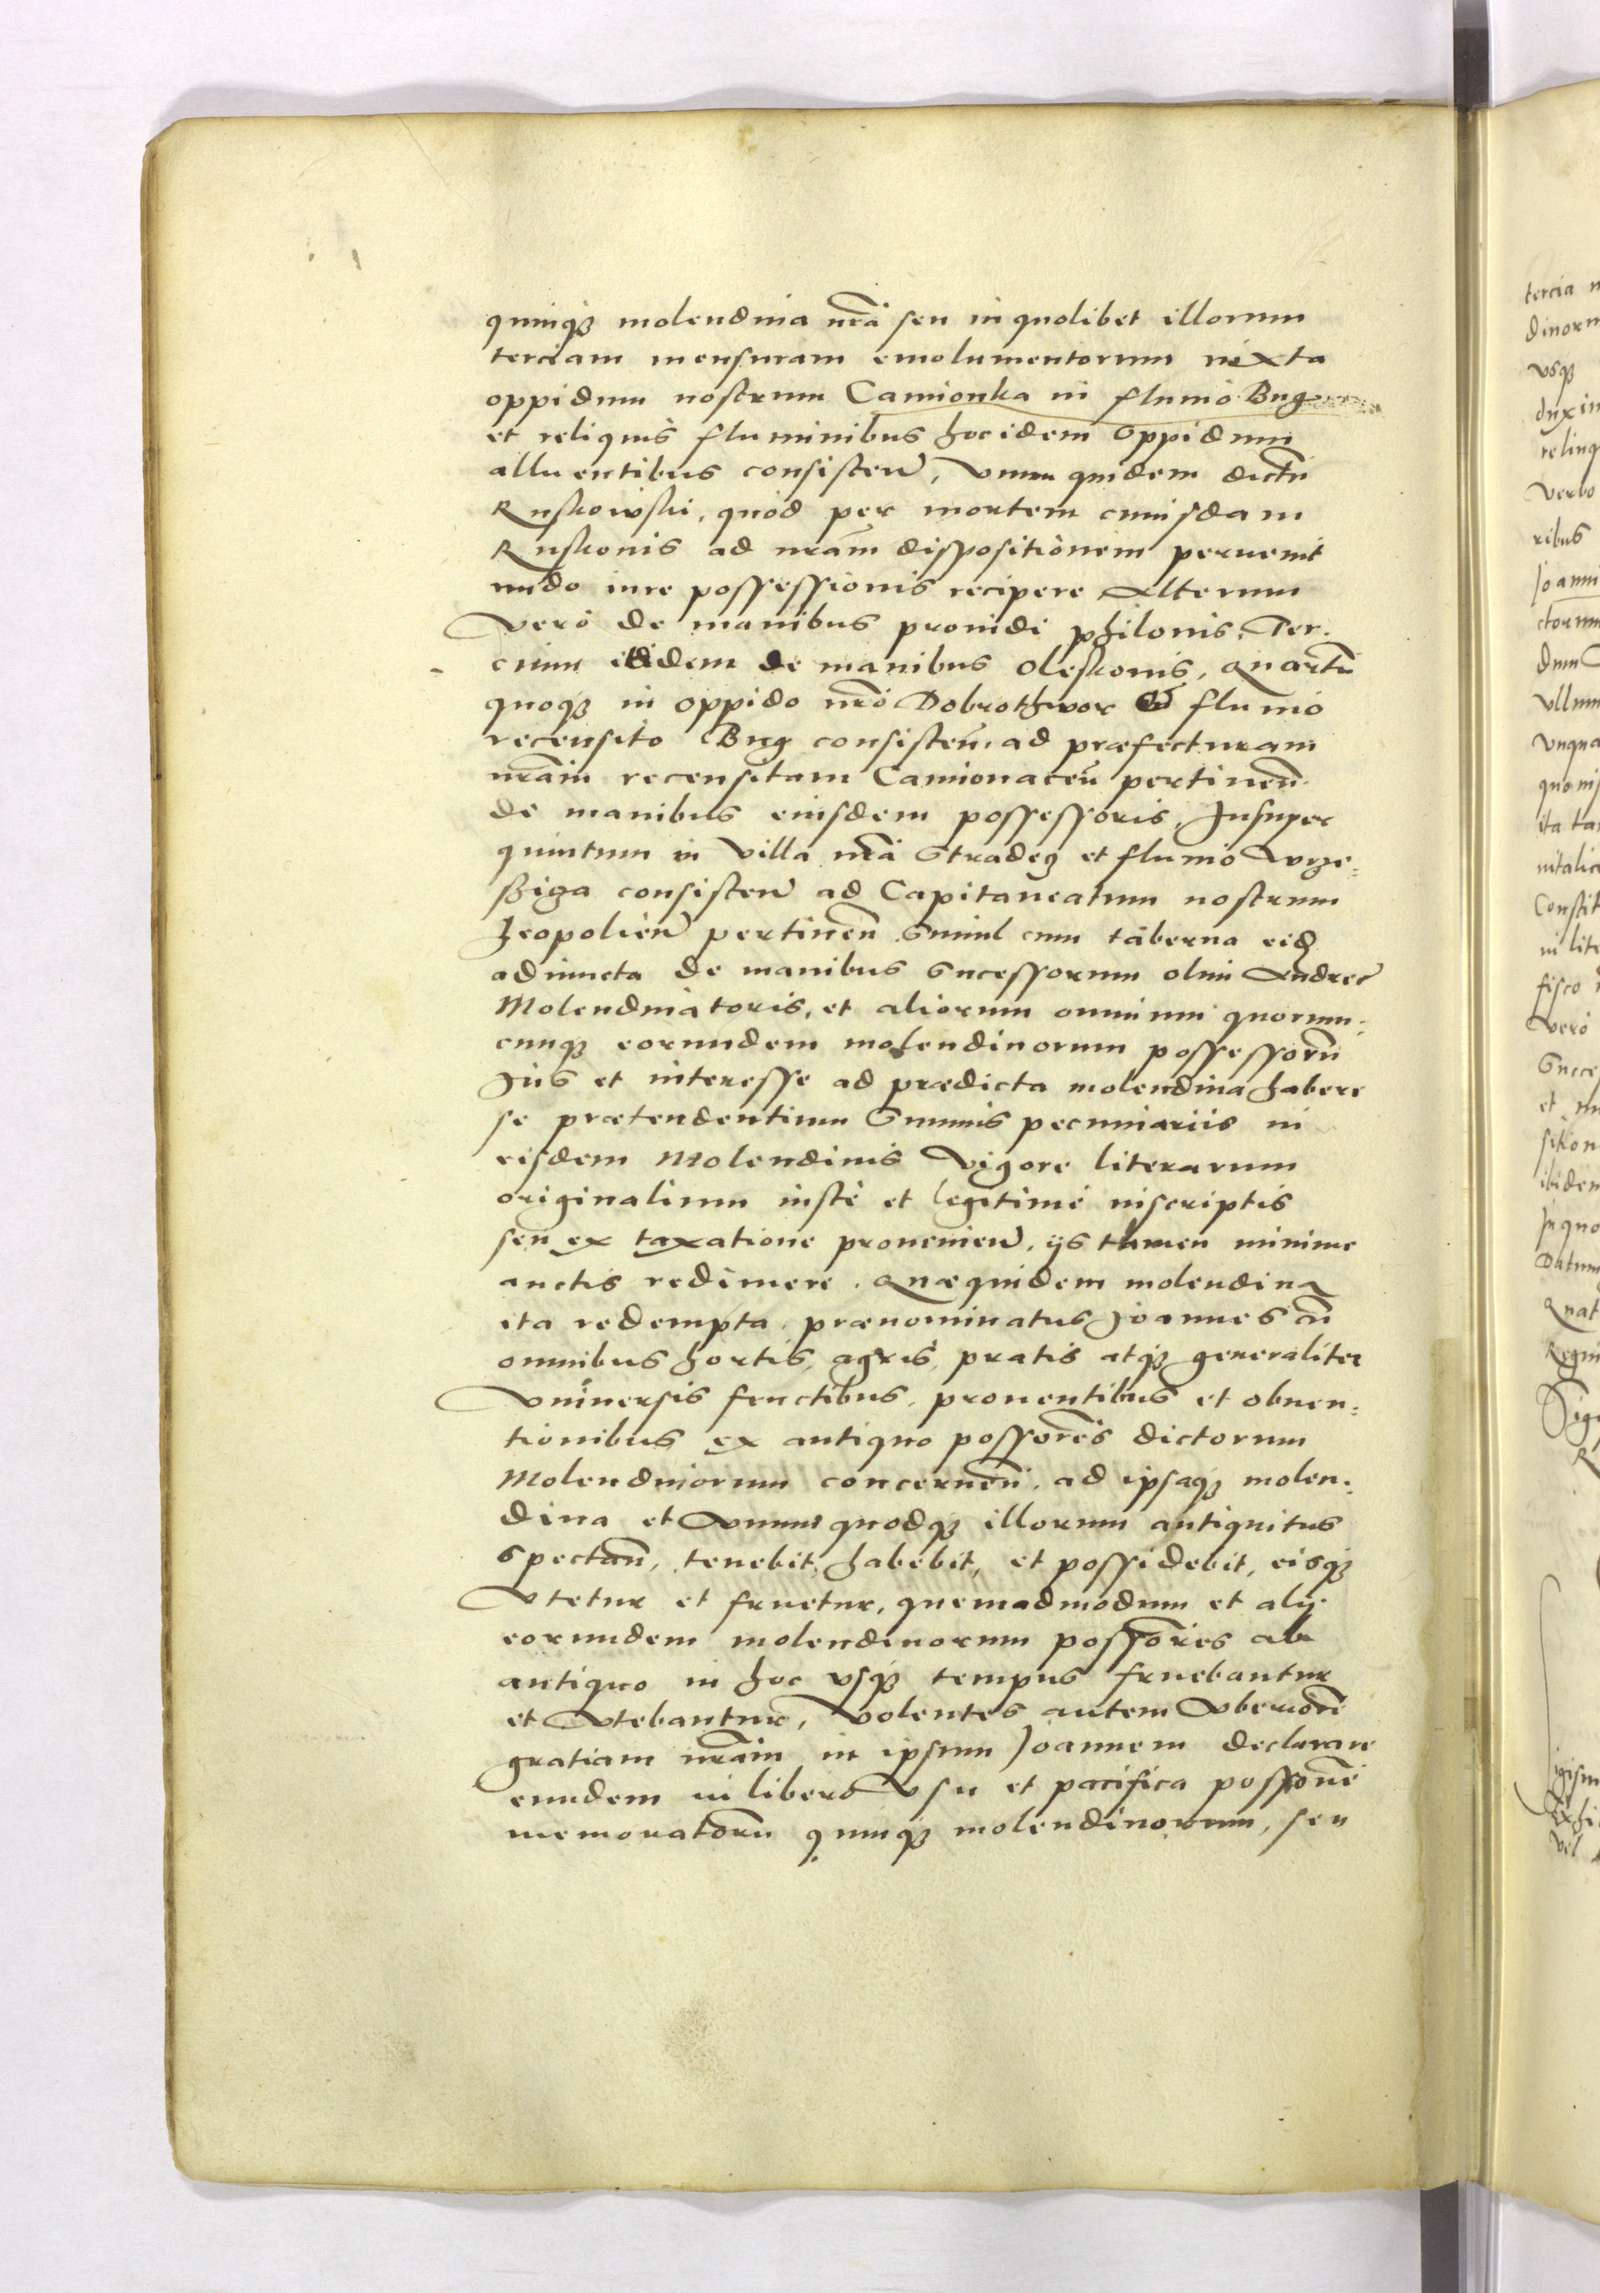 quinqȝ molendina nr̃a seu in quolibet illorum
terciam mensuram emolumentorum iuxta
oppidum nostrum Camionka in fluuio Bug
et reliquis fluminibus hoc idem oppidum
alluentibus consisteñ, Vnum quidem dictũ
Ruskowski, quod per mortem cuiusdam
Ruskonis ad nr̃am dispositionem peruenit
nudo iure possessionis recipere Alterum
Vero de manibus prouidi philonis, Ter-
cium itidem de manibus Oleskonis, Quartũ
quoqȝ in oppido nr̃o Dobrothwor et fluuio
recensito Bug consisteñ, ad præfecturam
nr̃am recensitam Camionaceñ pertineñ
de manibus eiusdem possessoris, Insuper
quintum in Villa nr̃a Stradcz et fluuio Wrze-
sziza consisteñ ad Capitaneatum nostrum
Leopolieñ pertineñ Simul cum taberna eid
adiuncta de manibus Successorum olim Andreę
Molendinatoris, et aliorum omnium quorum-
cunqȝ eorundem molendinorum possessorũ
Jus et interesse ad prædicta molendina habere
se prætendentium Summis pecuniariis in
eisdem Molendinis Vigore literarum
originalium iustè et legitimè inscriptis
seu ex taxatione prouenieñ, ijs tamen minime
auctis redimere. Quæquidem molendina
ita redempta, prænominatus Joannes cũ
omnibus hortis, agris, pratis atqȝ generaliter
Vniuersis fructibus, prouentibus et obuen-
tionibus ex antiquo possores dictorum
Molendinorum concerneñ, ad ipsaqȝ molen-
dina et Vnumquodqȝ illorum antiquitus
spectañ, tenebit, habebit, et possidebit, eisqȝ
Vtetur et fruetur, quemadmodum et alij
eorundem molendinorum possores ab
antiquo in hoc vsqȝ tempus fruebantur
et Vtebantur, Volentes autem Vberiorẽ
gratiam nr̃am in ipsum Joannem declarare
eundem in libero Vsu et pacifica possione
memoratorũ quinqȝ molendinorum, seu